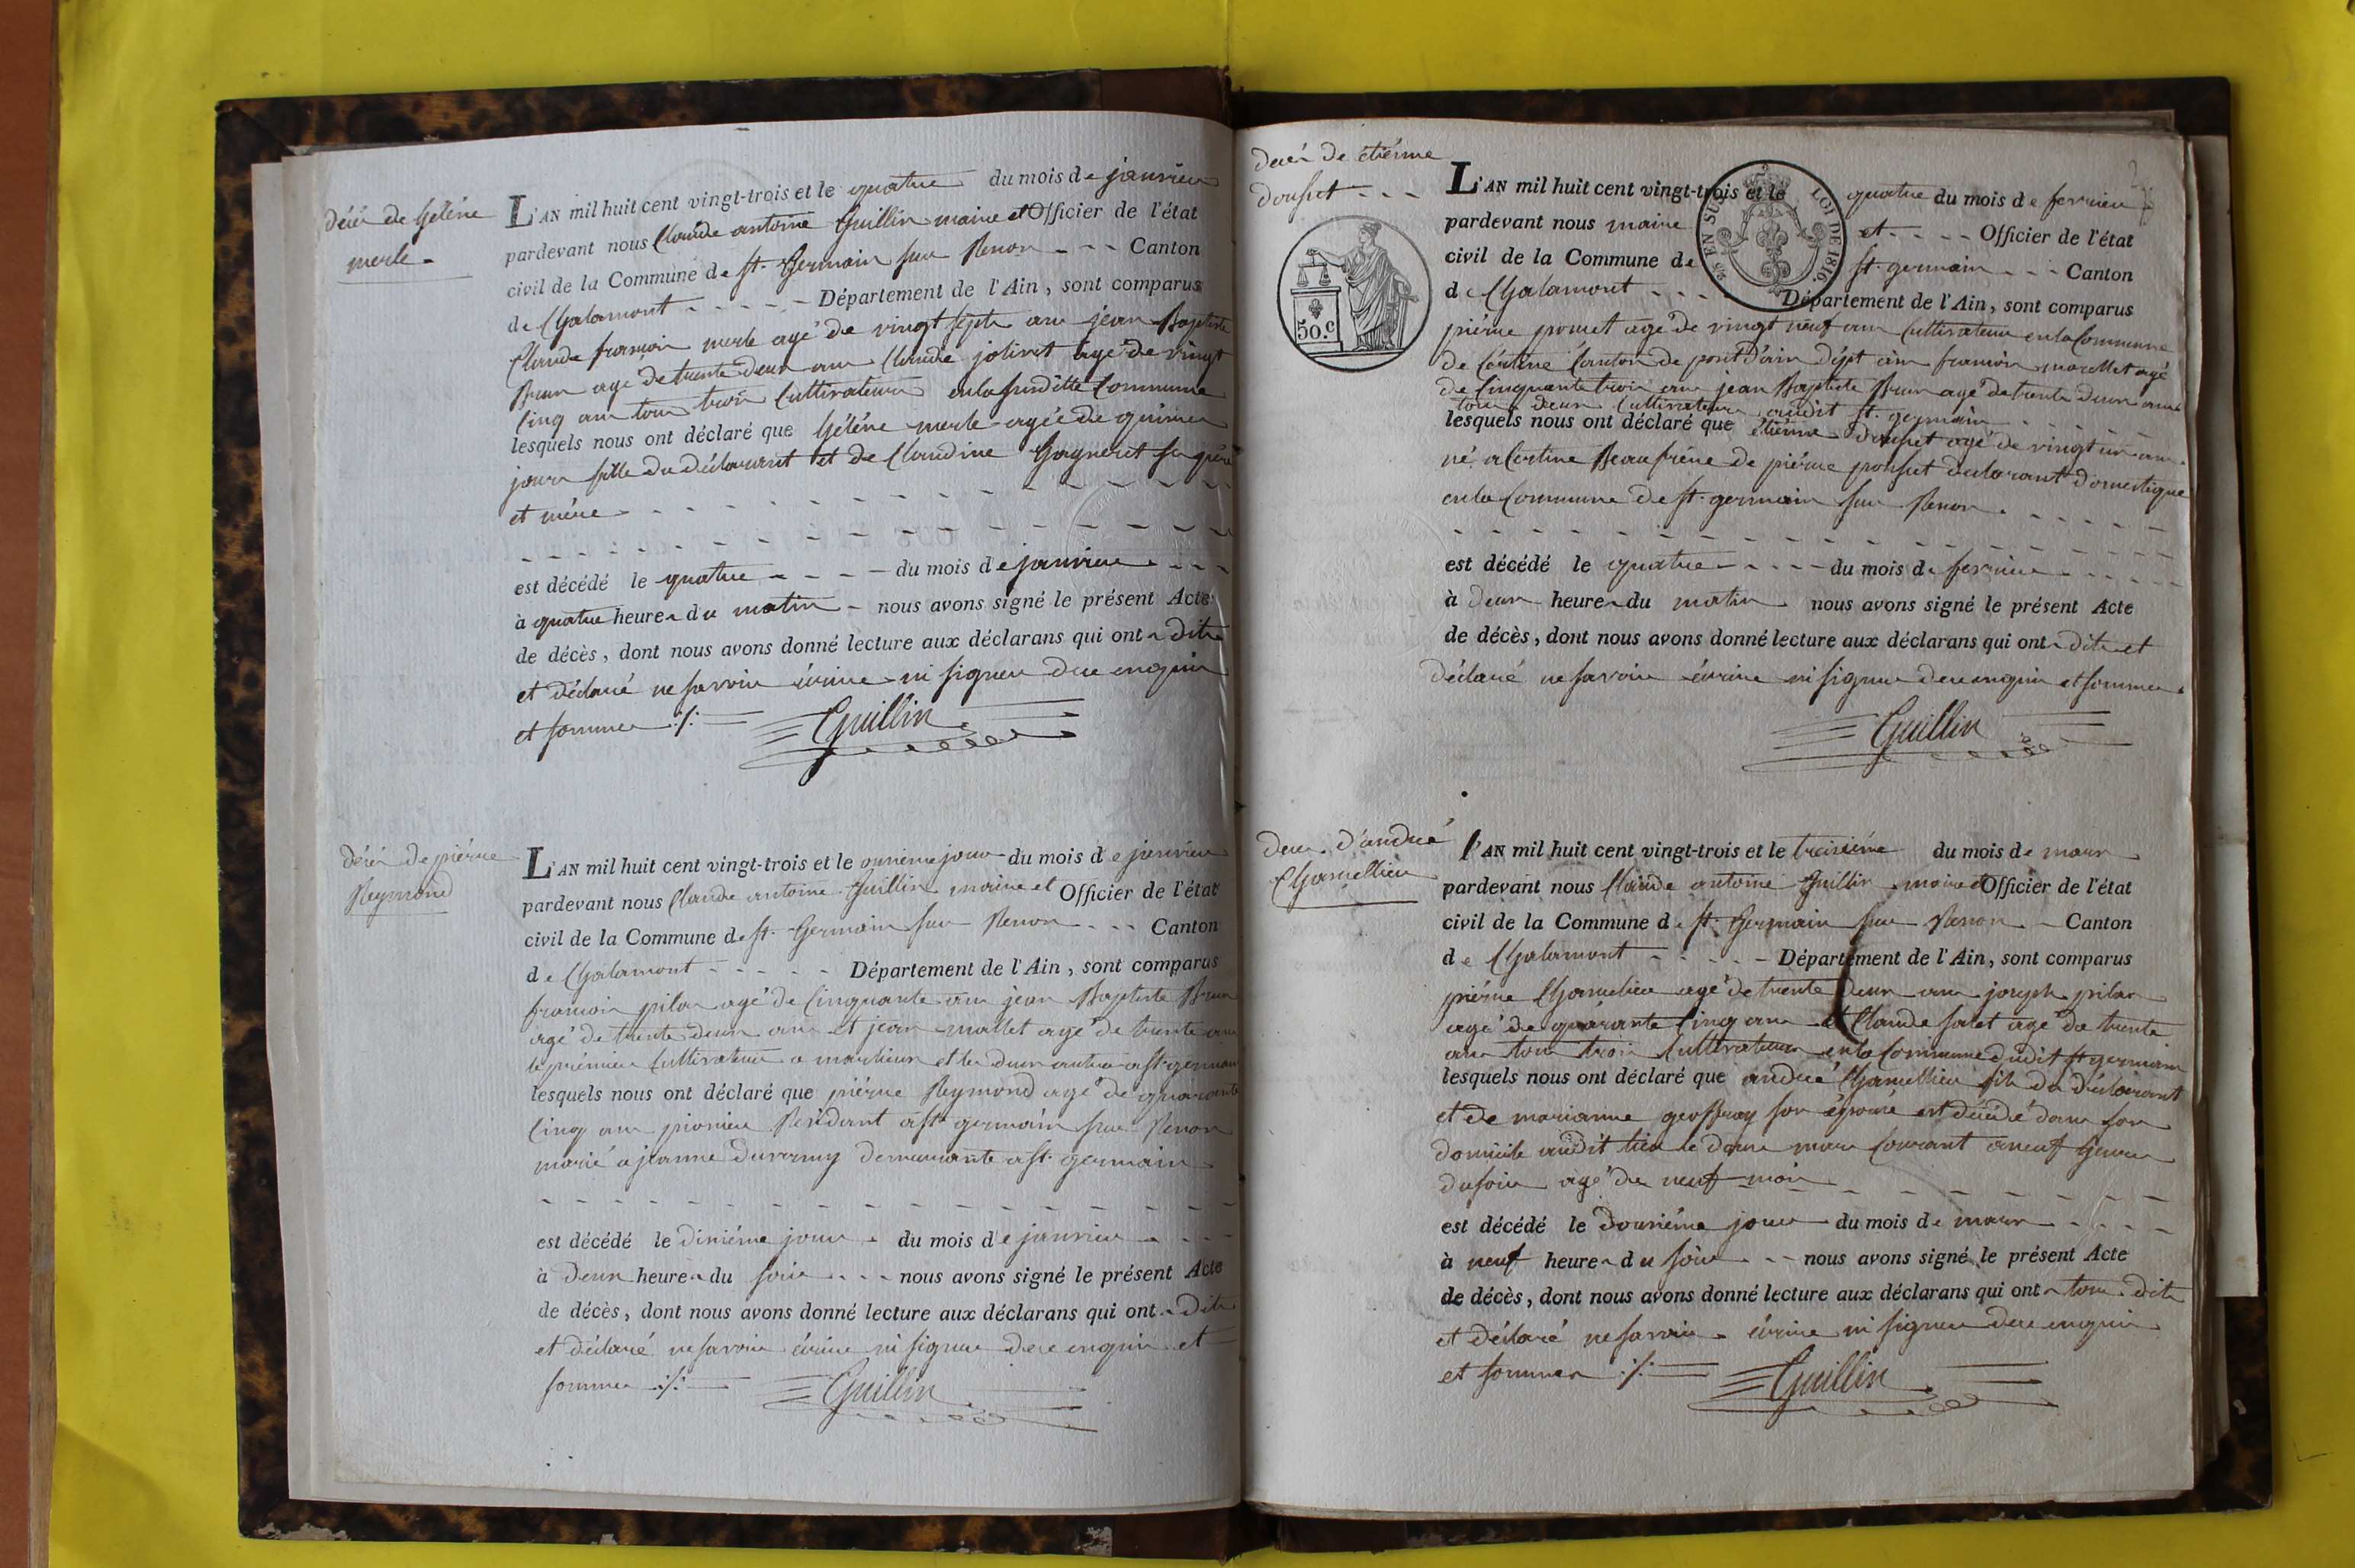 décès de héléne
merle
L'AN mil huit cent vingt-trois et le quatre du mois de janvier
pardevant nous Claude antoine Guillin maire et Officier de l'état
civil de la Commune de St. Germain sur Renon Canton
de Chalamont Département de l'Ain, sont comparus
Claude françois merle agé de vingt sept ans jean Baptiste
Brun agé de trente deux ans Claude jolivet agé de vingt
cinq ans tous trois Cultivateurs en la susditte Commune
lesquels nous ont déclaré que héléne merle agée de quinze
jours fille du déclarant et de Claudine
et mére
est décédé le quatre du mois de janvier
à quatre heures du matin nous avons signé le présent Acte
de décès, dont nous avons donné lecture aux déclarans qui ont dit
et déclaré ne savoir écrire ni signer de ce enquis
et sommés ./.
Guillin
décés de piérre
Reymond
L'AN mil huit cent vingt-trois et le onzieme jour du mois de janvier
pardevant nous Claude antoine Guillin maire et Officier de l'état
civil de la Commune de St. Germain sur Renon Canton
de Chalamont Département de l'Ain, sont comparus
françois pilas agé de Cinquante ans jean Baptiste Brun
agé de trente deux ans et jean mallet agé de trente ans
le prémier Cultivateur a marlieux et les deux autres a St. germain
lesquels nous ont déclaré que piérre Reymond agé de quarante
cinq ans Résidant a St. germain sur Renon
marié a jeanne demeurante a St. germain
est décédé le dixiéme jour du mois de janvier
à deux heures du soir nous avons signé le présent Acte
de décès, dont nous avons donné lecture aux déclarans qui ont dit
et déclaré ne savoir écrire ni signer de ce enquis et
sommés ./.
Guillin
décés de étiénne
douset
50.c
EN SUS LOI DE 1816.
L'AN mil huit cent vingt-trois et le quatre du mois de fevrier
pardevant nous maire et Officier de l'état
civil de la Commune de St. germain Canton
de Chalamont Département de l'Ain, sont comparus
piérre agé de vingt neuf ans Cultivateur en la Commune
de Certine Canton de pont d'ain dépt ain françois marellet agé
de Cinquante trois ans jean Baptiste Brun agé de trente deux ans
tous deux Cultivateurs audit St. germain
lesquels nous ont déclaré que étiénne douset agé de vingt un ans
né a Certine Beaufrére de piérre déclarant domestique
en la Commune de St. germain sur Renon
est décédé le quatre du mois de fevrier
à deux heures du matin nous avons signé le présent Acte
de décès, dont nous avons donné lecture aux déclarans qui ont dit et
déclaré ne savoir écrire ni signer de ce enquis et sommés
Guillin
décés d'andré
Chamellieu
L'AN mil huit cent vingt-trois et le treiziéme du mois de mars
pardevant nous Claude antoine Guillin maire et Officier de l'état
civil de la Commune de St. Germain sur Renon Canton
de Chalamont Département de l'Ain, sont comparus
piérre Chamelieu agé de trente deux ans joseph pilas
agé de quarante cinq ans et Claude salet agé de trente
ans tous trois Cultivateurs en la Commune dudit St germain
lesquels nous ont déclaré que andré Chamellieu fils du déclarant
et de marianne geoffray son épouse est décédé dans son
domicile audit lieu le douze mars Courant a neuf heures
du soir agé de neuf mois
est décédé le douziéme jour du mois de mars
à neuf heures du soir nous avons signé le présent Acte
de décès, dont nous avons donné lecture aux déclarans qui ont tous dit
et déclaré ne savoir écrire ni signer de ce enquis
et sommés ./.
Guillin